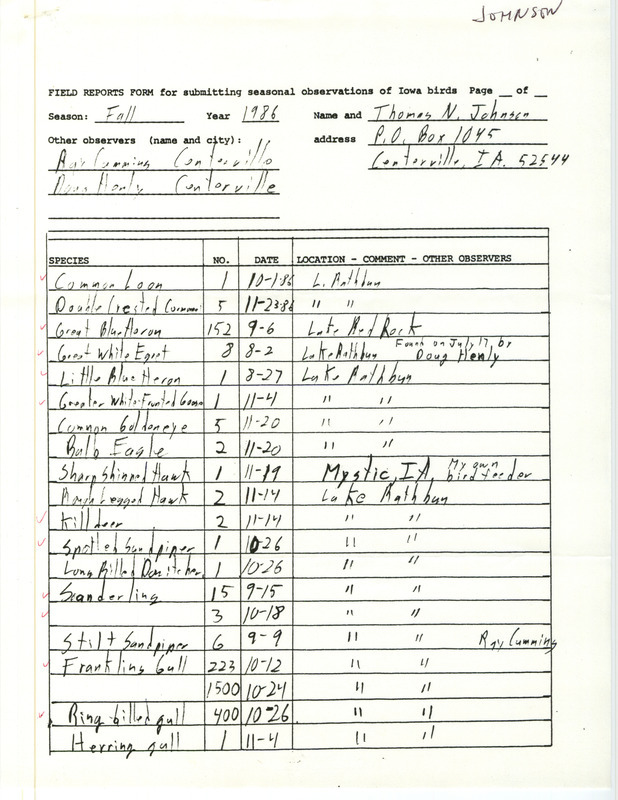 JOHNSON
FIELD REPORTS FORM for submitting seasonal observations of Iowa birds Page __ of __
Season: Fall Year 1986 Name and Thomas N. Johnson
Other observers (name and city): address P.O. Box 1045
Ray Cumming Centerville Centerville, IA. 52544
Doug Henly Centerville
SPECIES NO. DATE LOCATION - COMMENT - OTHER OBSERVERS
Common Loon 1 10-1-86 L. Rathbun
Double Crested 5 11-23-86 " "
Great Blue Heron 152 9-6 Lake Red Rock
Great White Egret 8 8-2 Lake Rathbun Found on July 17 by Doug Henly
Little Blue Heron 1 8-27 Lake Rathbun
Greater White-Fronted Goose 1 11-4 " "
Common Goldeneye 5 11-20 " "
Bald Eagle 2 11-20 " "
Sharp Shinned Hawk 1 11-19 Mystic, IA, My own bird feeder
Rough Legged Hawk 2 11-14 Lake Rathbun
Killdeer 2 11-14 " "
Spotted Sandpiper 1 10-26 " "
Long Billed Dowitcher 1 10-26 " "
Sanderling 15 9-15 " "
3 10-18 " "
Stilt Sandpiper 6 9-9 " " Ray Cumming
Franklins Gull 223 10-12 " "
1500 10-24 " "
Ring-billed gull 400 10-26 " "
Herring gull 1 11-4 " "